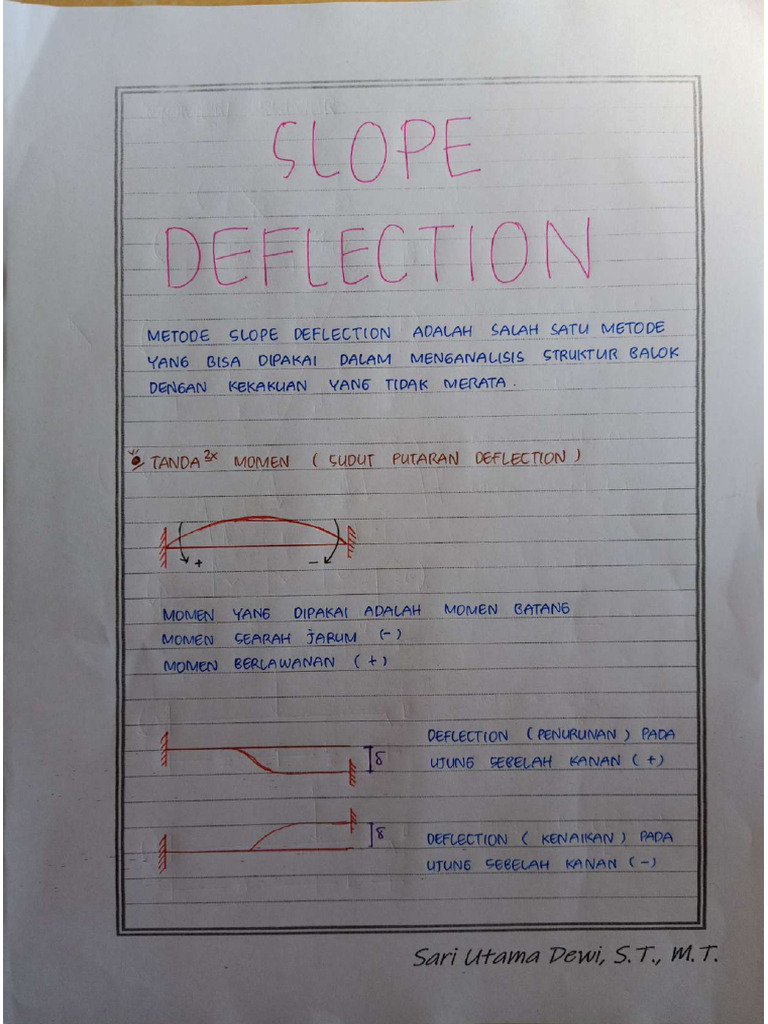 SLOPE
DEFLECTION
METODE SLOPE DEFLECTION ADALAH SALAH SATU METODE
YANG BISA DIPAKAI DALAM MENGANALISIS STRUKTUR BALOK
DENGAN KEKAKUAN YANG TIDAK MERATA.
TANDA²ˣ MOMEN (SUDUT PUTARAN DEFLECTION)
+ -
MOMEN YANG DIPAKAI ADALAH MOMEN BATANG
MOMEN SEARAH JARUM (-)
MOMEN BERLAWANAN (+)
DEFLECTION (PENURUNAN) PADA
UJUNG SEBELAH KANAN (+)
δ
DEFLECTION (KENAIKAN) PADA
UJUNG SEBELAH KANAN (-)
δ
Sari Utama Dewi, S.T., M.T.